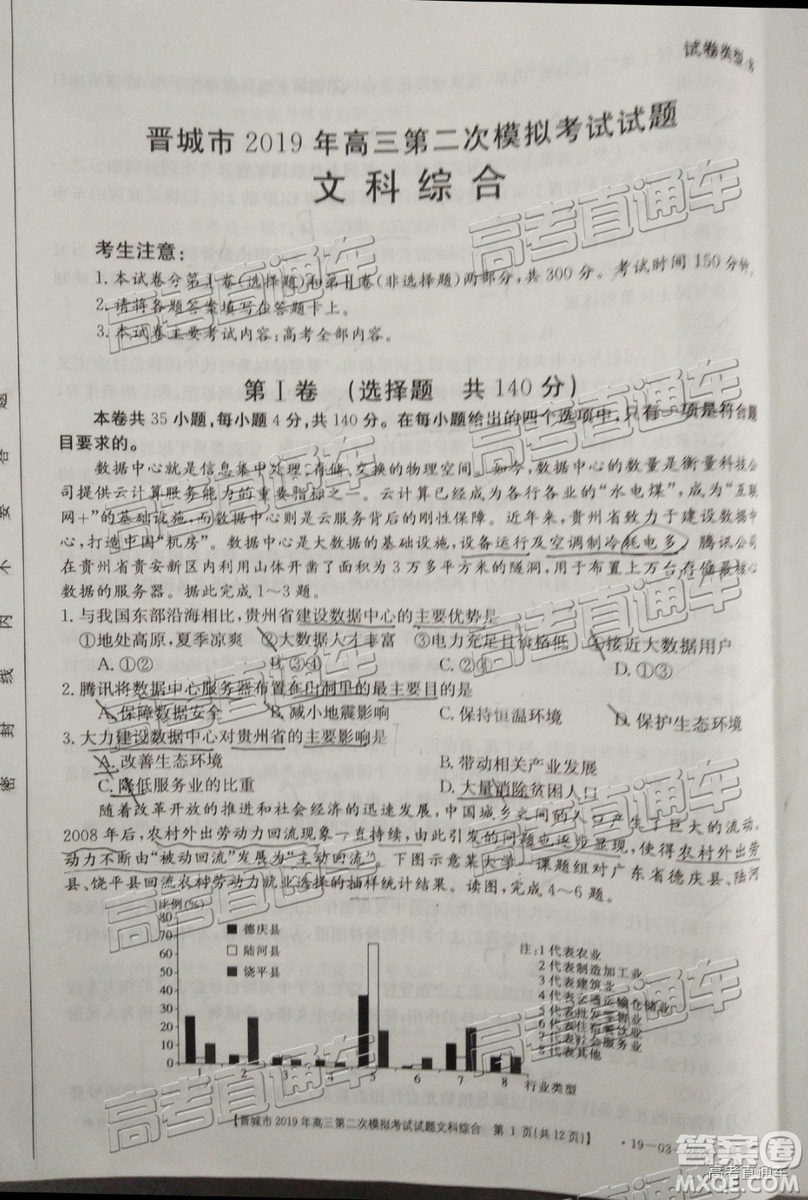 试卷类型:
晋城市 2019 年高三第二次模拟考试试题
文科综合
考生注意:
1. 本试卷分第Ⅰ卷(选择题)和第Ⅱ卷(非选择题)两部分,共 300 分。考试时间 150 分钟。
2. 请将各题答案填写在答题卡上。
3. 本试卷主要考试内容:高考全部内容。
第Ⅰ卷 (选择题 共 140 分)
本卷共 35 小题,每小题 4 分,共 140 分。在每小题给出的四个选项中,只有一项是符合题
目要求的。
数据中心就是信息集中处理、存储、交换的物理空间。如今,数据中心的数量是衡量科技公
司提供云计算服务能力的重要指标之一。云计算已经成为各行各业的“水电煤”,成为“互联
网+”的基础设施,而数据中心则是云服务背后的刚性保障。近年来,贵州省致力于建设数据中
心,打造中国“机房”。数据中心是大数据的基础设施,设备运行及空调制冷耗电多。腾讯公司
在贵州省贵安新区内利用山体开凿了面积为 3 万多平方米的隧洞,用于放置上万台存储最核心
数据的服务器。据此完成 1~3 题。
1. 与我国东部沿海相比,贵州省建设数据中心的主要优势是
①地处高原,夏季凉爽 ②大数据人才丰富 ③电力充足且价格低 ④接近大数据用户
A. ①② B. ③④ C. ②④ D. ①③
2. 腾讯将数据中心服务器布置在山洞里的最主要目的是
A. 保障数据安全 B. 减小地震影响 C. 保持恒温环境 D. 保护生态环境
3. 大力建设数据中心对贵州省的主要影响是
A. 改善生态环境 B. 带动相关产业发展
C. 降低服务业的比重 D. 大量消除贫困人口
随着改革开放的推进和社会经济的迅速发展,中国城乡之间的人口产生了巨大的流动。
2008 年后,农村外出劳动力回流现象一直持续,由此引发的问题也逐步显现,使得农村外出劳
动力不断由“被动回流”发展为“主动回流”。下图示意某大学一课题组对广东省德庆县、陆河
县、饶平县回流农村劳动力就业选择的抽样统计结果。读图,完成 4~6 题。
比例(%)
80
70
60
50
40
30
20
10
0
德庆县
陆河县
饶平县
1 2 3 4 5 6 7 8 行业类型
注:1 代表农业
2 代表制造加工业
3 代表建筑业
4 代表交通运输仓储业
5 代表批发零售业
6 代表住宿餐饮业
7 代表社会服务业
8 代表其他
【晋城市 2019 年高三第二次模拟考试试题文科综合 第 1 页(共 12 页)】
·19—03
密 封 线 内 不 要 答 题
高考直通车
高考直通车
高考直通车
高考直通车
高考直通车
高考直通车
高考直通车
答案圈
MXQE.COM
高考直通车